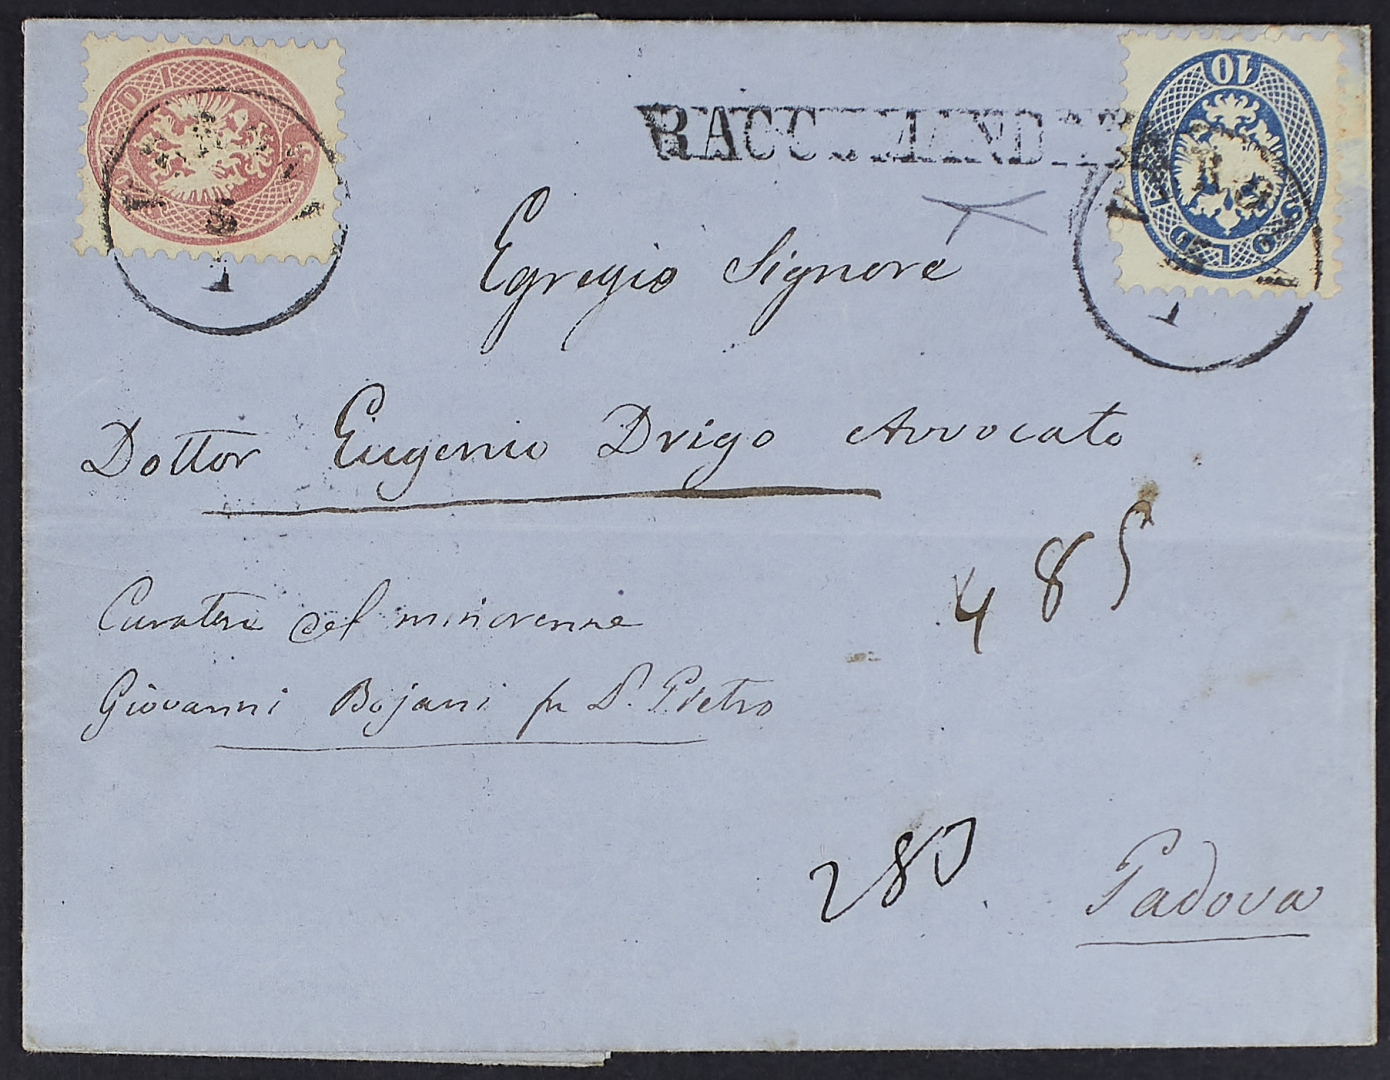 RACCOMANDATA
10
SOLDI
Egregio Signore
Dottor Eugenio Drigo Avvocato
485
Curatore del minorenne
Giovanni Bojani fu P. Pietro
280
Padova